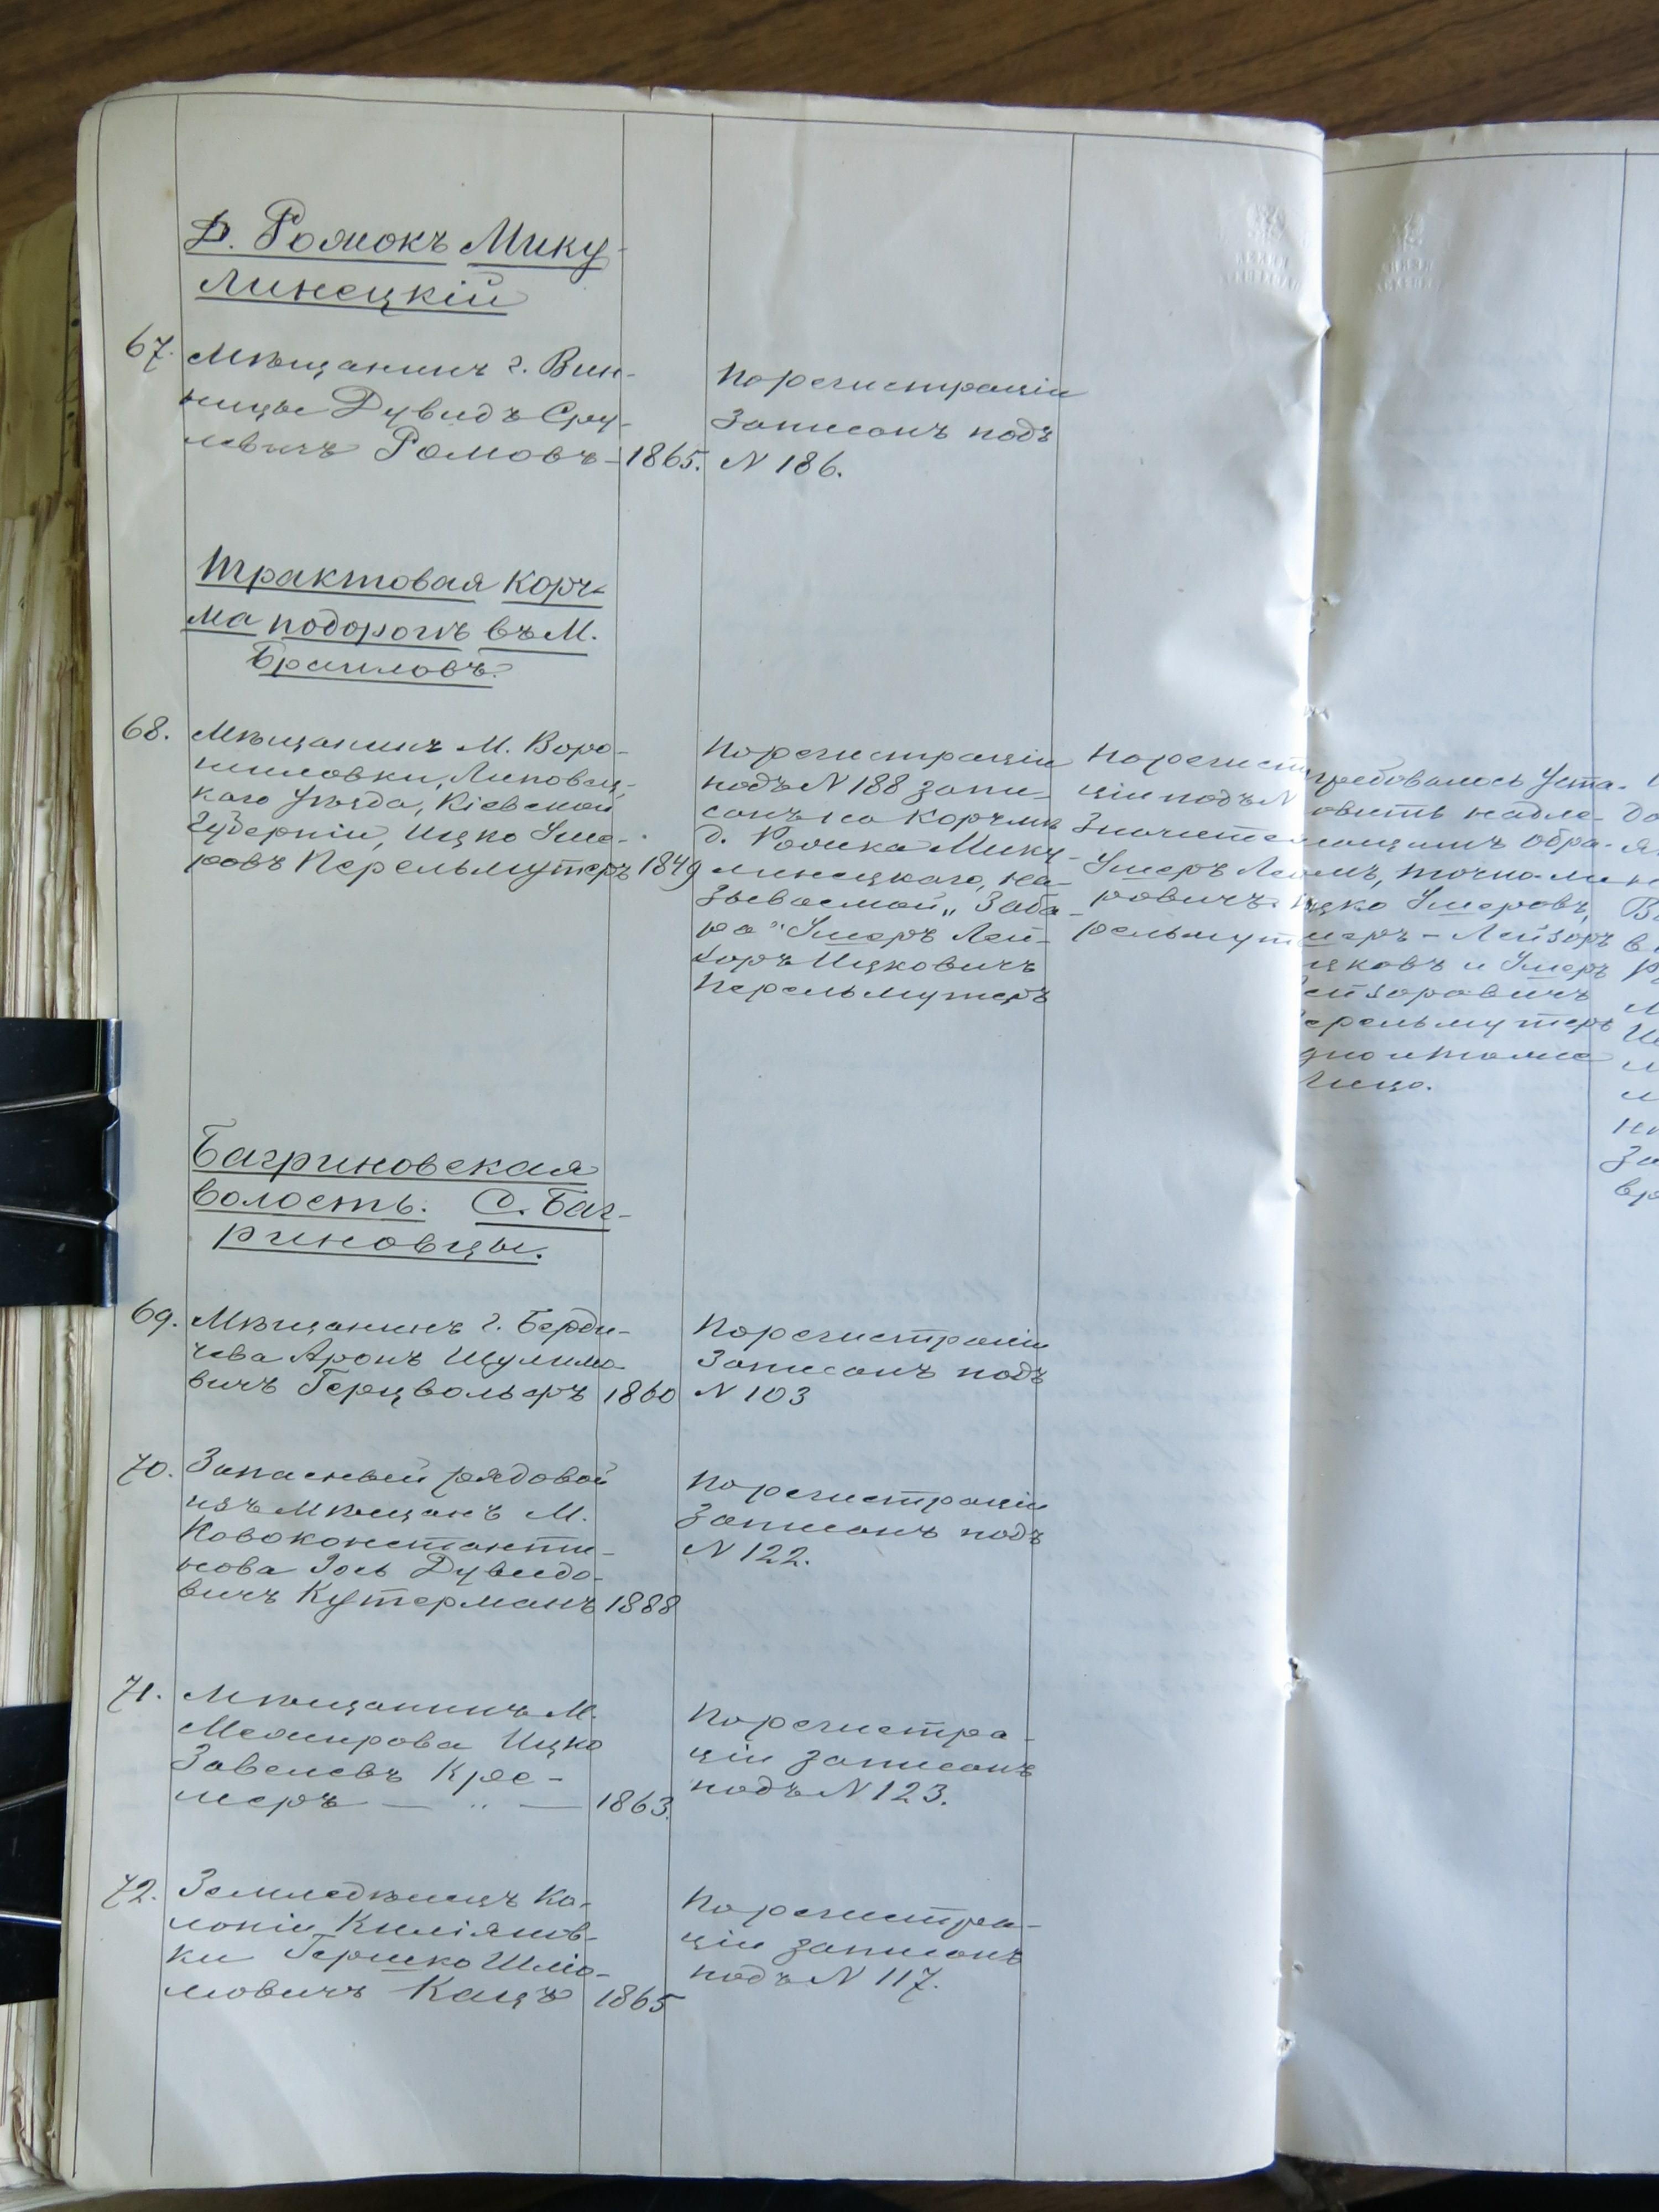 Д. Рожокъ Мику-
линецкій
67. Мѣщанинъ г. Вин-
ницы Дувидъ Сру-
левичъ Ромовъ - 1865.
По регистраціи
записанъ подъ
N 186.
Трактовая корч-
ма по дорогѣ въ М.
Браиловъ.
68. Мѣщанинъ М. Воро-
шиловки, Липовец-
каго уѣзда, Кіевской
Губерніи, Ицко Уше-
ровъ Перельмутеръ 1849
По регистраціи
подъ N 188 запи-
санъ на корчмѣ
д. Рожка Мику-
линецкаго, на-
зываемой „Заба-
ра“ Ушеръ Лей-
зоръ Ицковичъ
Перельмутеръ
По регист
ціи подъ N
значится
Ушеръ Ле
ровичъ
рельмут
требовалось уста-
овить надле-
ащимъ обра-
омъ, точно ли
Ицко Ушеровъ,
шеръ - Лейзоръ
цковъ и Ушеръ
ейзоровичъ
ерельмутеръ
дно и тоже
лицо.
Багриновская
волость. С. Баг-
риновцы.
69. Мѣщанинъ г. Берди-
чева Аронъ Шулимо-
вичъ Герцвольфъ 1860
По регистраціи
записанъ подъ
N 103
70. Запасный рядовой
изъ мѣщанъ М.
Новоконстанти-
нова Іось Дувидо-
вичъ Кутерманъ 1888
По регистраціи
записанъ подъ
N 122.
71. Мѣщанинъ М.
Межирова Ицко
Завелевъ Кре-
меръ — „ — 1863.
По регистра-
ціи записанъ
подъ N 123.
72. Земледѣлецъ ко-
лоніи Киліянов-
ки Гершко Шліо-
мовичъ Кацъ 1865
По регистра-
ціи записанъ
подъ N 117.